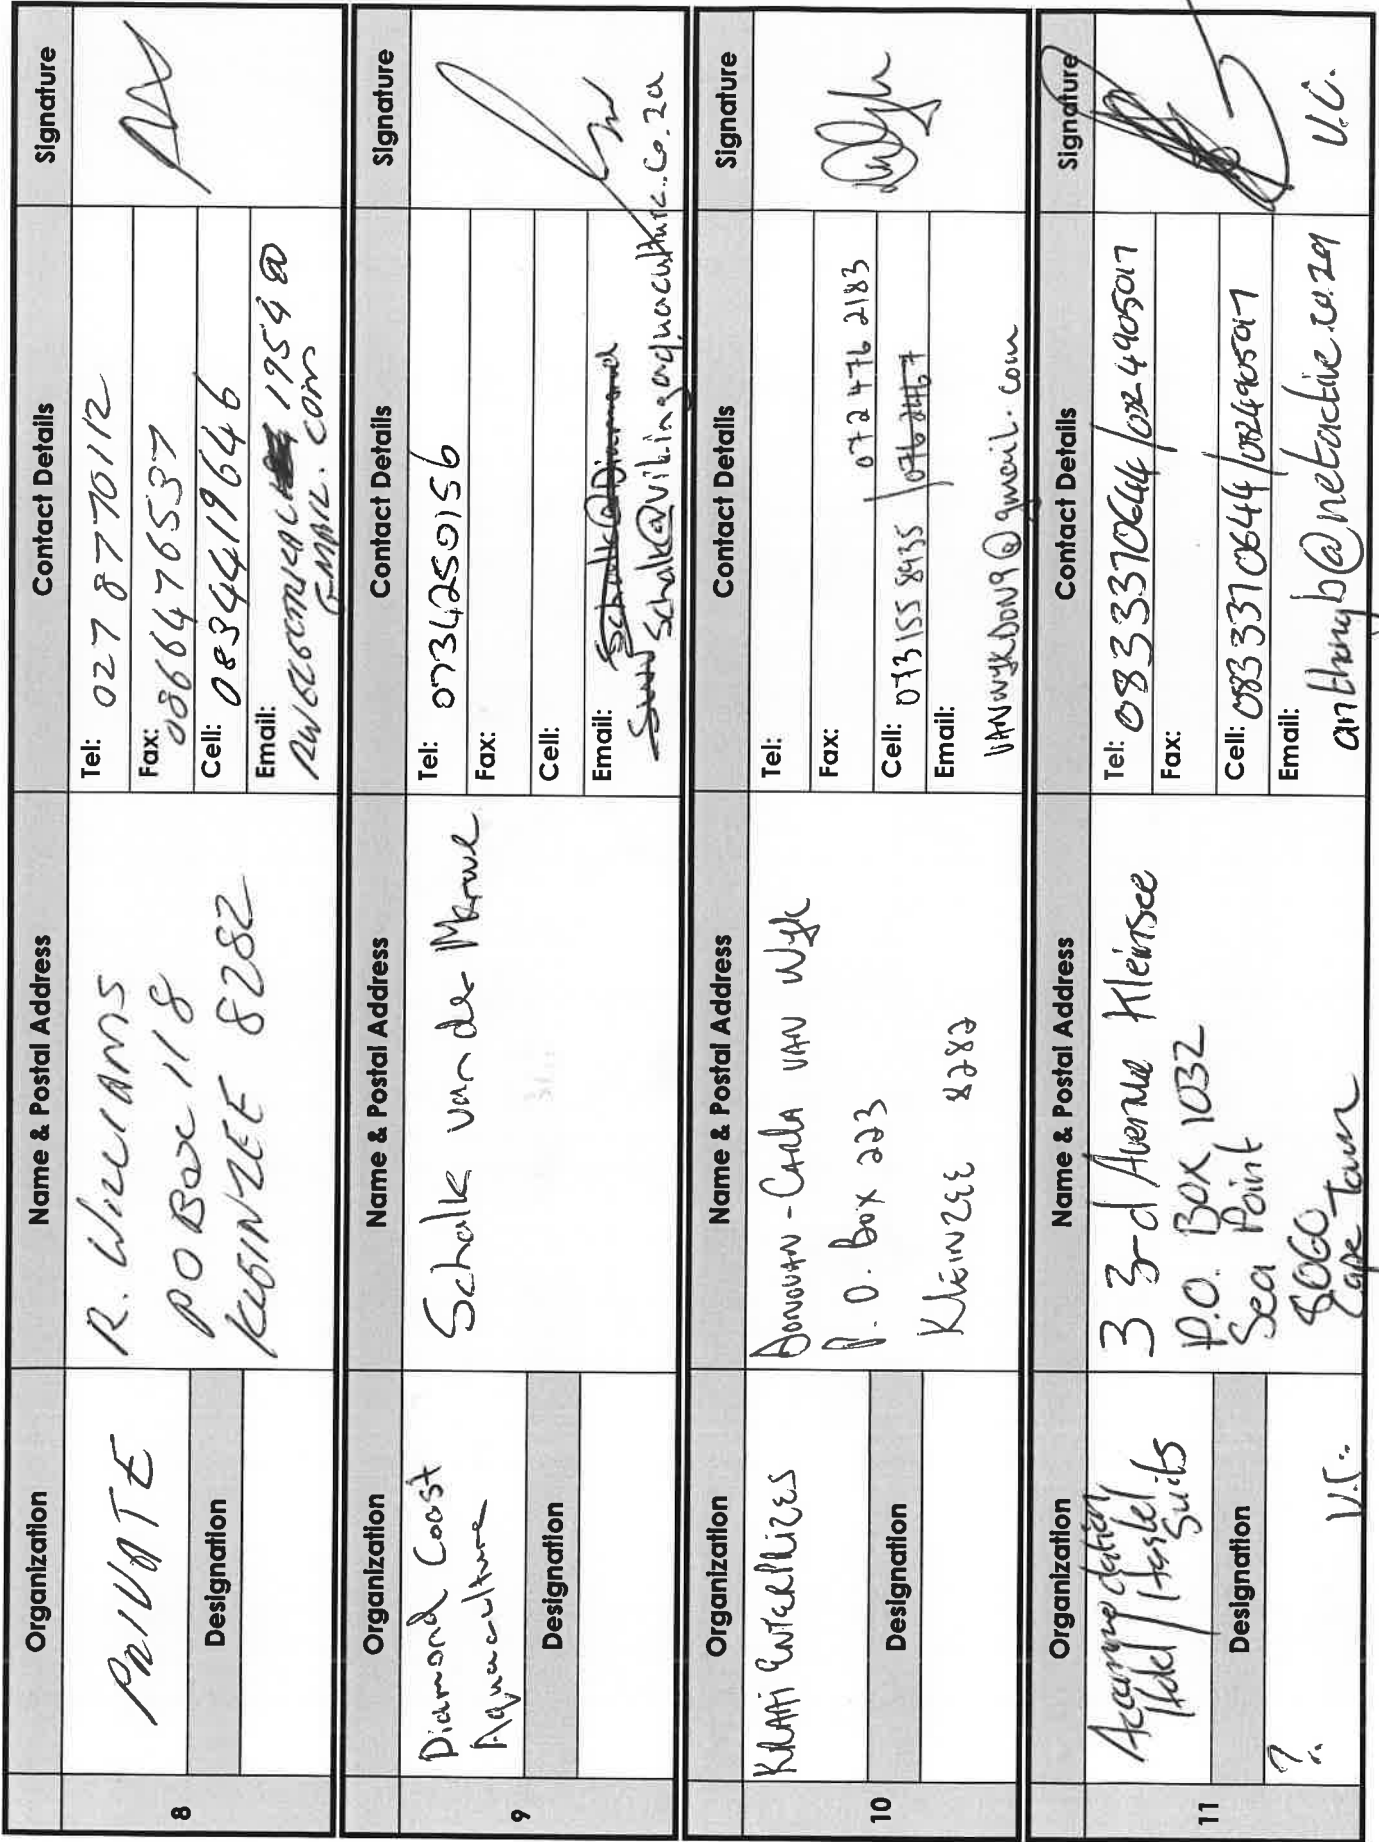 Organization Name & Postal Address Contact Details Signature
8
PRIVATE
Designation
R. WILLIAMS
PO Box 118
KLEINZEE 8282
Tel: 027 8770112
Fax: 0866476537
Cell: 0834419646
Email:
1954@
GMAIL.COM
Organization Name & Postal Address Contact Details Signature
9
Diamond Coast
Aquaculture
Designation
Schalk van der Merwe
Tel: 0734250156
Fax:
Cell:
Email: Schalk@Diamond
Schalk@vikingaquaculture.co.za
Organization Name & Postal Address Contact Details Signature
10
KRAAI ENTERPRIZES
Designation
DONOVAN-CARLA VAN Wyk
P.O. Box 223
KLEINZEE 8282
Tel:
Fax:
072 476 2183
Cell: 073 155 8935 / 076 2467
Email:
VANWYKDON9@gmail.com
Organization Name & Postal Address Contact Details Signature
11
Accommodation
Hotel / Hostel
Suits
Designation
?.
V.C.
3 3rd Avenue Kleinsee
P.O. Box 1032
Sea Point
8060
Cape Town
Tel: 0833370644/0824905017
Fax:
Cell: 0833370644/0824905017
Email:
anthonyb@netactive.co.za
V.C.